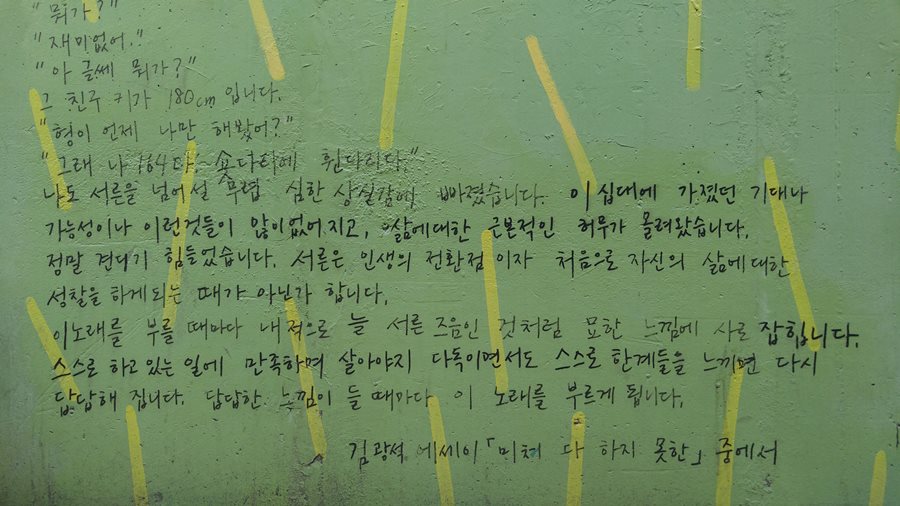 "뭐가?"
"재미없어."
"아 글쎄 뭐가?"
그 친구 키가 180cm 입니다.
"형이 언제 나만 해봤어?"
"그래 나 164다. 숏다리에 휜다리다."
나도 서른을 넘어설 무렵 심한 상실감에 빠졌습니다. 이십대에 가졌던 기대나
가능성이나 이런것들이 많이없어지고, 삶에대한 근본적인 허무가 몰려왔습니다.
정말 견디기 힘들었습니다. 서른은 인생의 전환점이자 처음으로 자신의 삶에대한
성찰을 하게되는 때가 아닌가 합니다.
이노래를 부를 때마다 내적으로 늘 서른 즈음인 것처럼 묘한 느낌에 사로잡힙니다.
스스로 하고있는 일에 만족하며 살아야지 다독이면서도 스스로 한계들을 느끼면 다시
답답해 집니다. 답답한 느낌이 들 때마다 이 노래를 부르게 됩니다.
김광석 에세이「미처 다 하지 못한」중에서